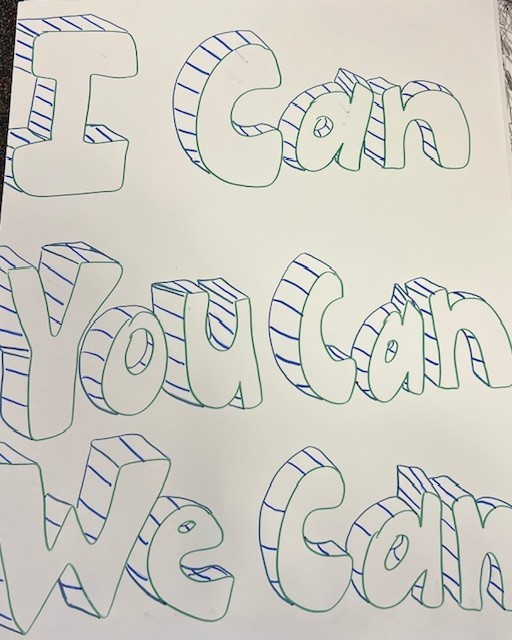 I Can
You Can
We Can